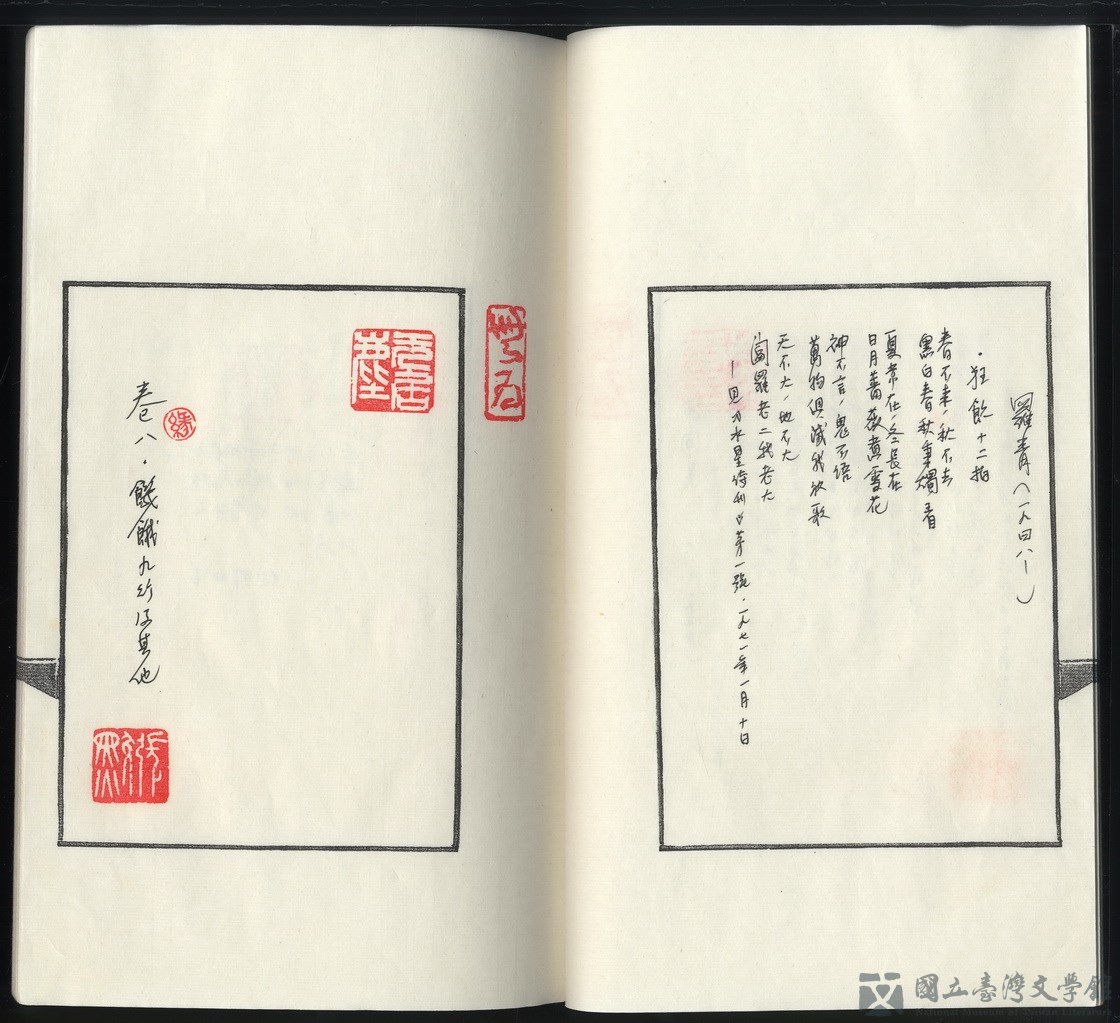 羅青（一九四八—）
·狂飲十二拍
春不來，秋不去
黑白春秋秉燭看
夏常在，冬長在
日月薔薇煮雪花
神不言，鬼不語
萬物俱滅我放歌
天不大，地不大
閻羅老二我老大
—見水星詩刊第一號·一九七一年一月十日
緣
卷八·餞餓九行及其他
張默
國立臺灣文學館
National Museum of Taiwan Literature